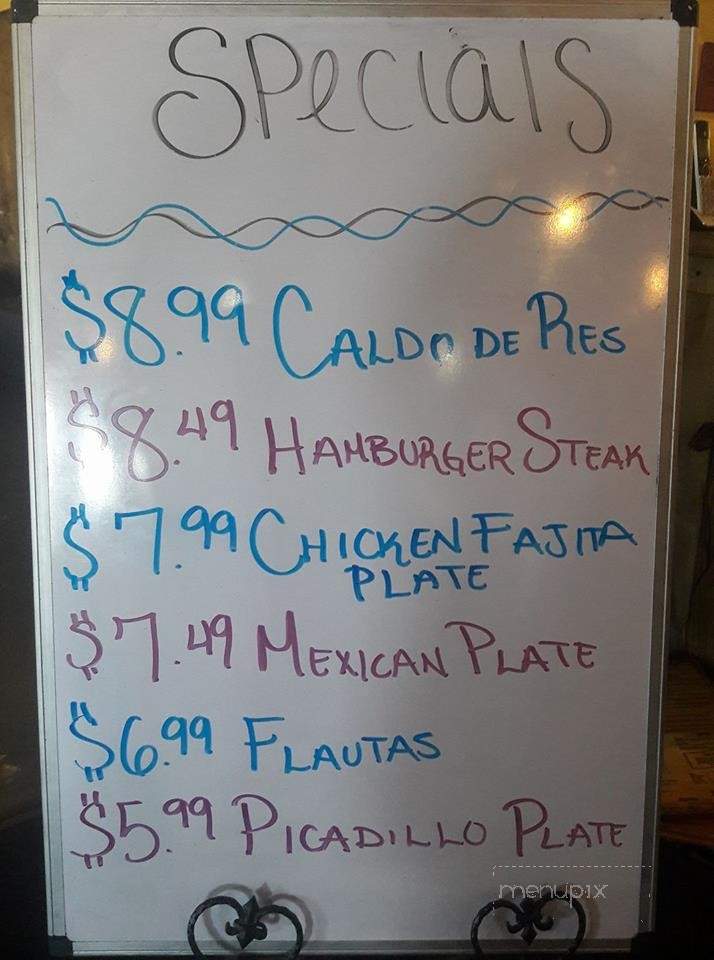 SPecials
$8.99 CALDO DE RES
$8.49 HAMBURGER STEAK
$7.99 CHICKEN FAJITA
PLATE
$7.49 MEXICAN PLATE
$6.99 FLAUTAS
$5.99 PICADILLO PLATE
menupix